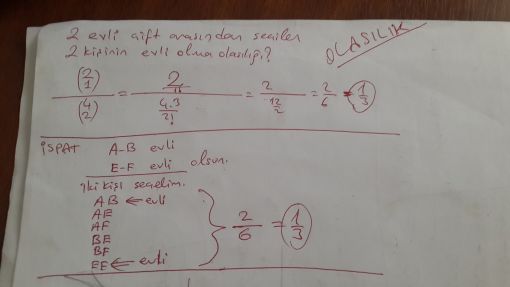 2 evli çift arasından seçilen
2 kişinin evli olma olasılığı?
OLASILIK
(2 1) / (4 2) = 2 / (4.3 / 2!) = 2 / (12 / 2) = 2/6 = 1/3
İSPAT A-B evli
E-F evli olsun.
iki kişi seçelim.
AB ← evli
AE
AF
BE
BF
EF ← evli
2/6 = 1/3